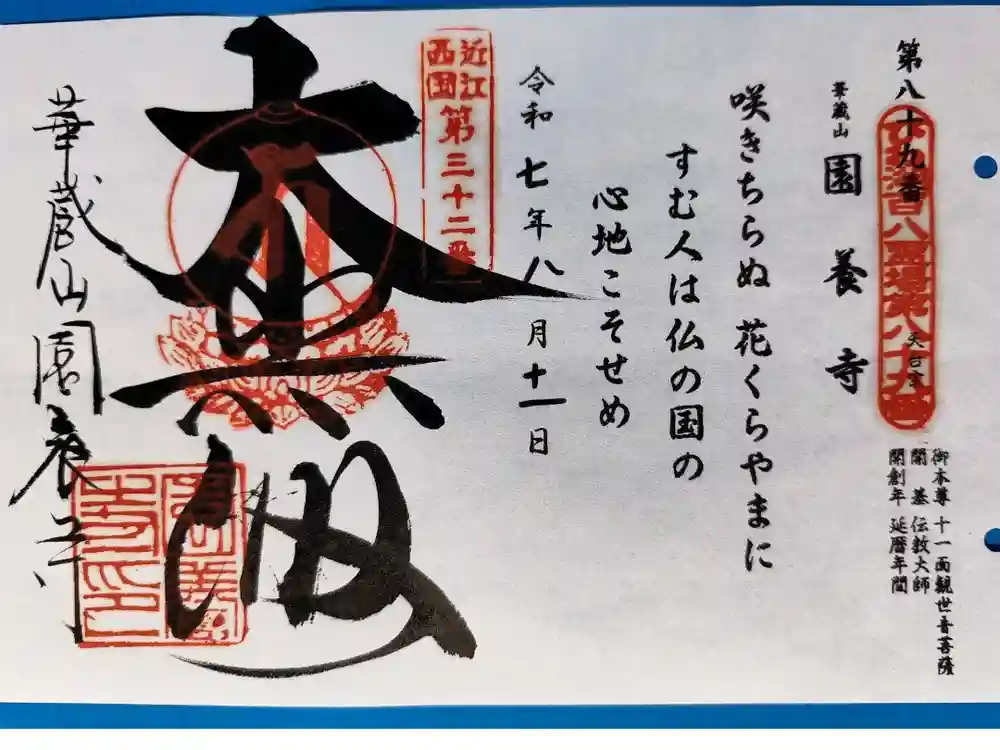 第八十九番
天台宗
御本尊 十一面観世音菩薩
開基 伝教大師
開創年 延暦年間
華蔵山 園養寺
咲きちらぬ 花くらやまに
すむ人は仏の国の
心地こそせめ
令和七年八月十一日
近江西国第三十二番
華蔵山園養寺